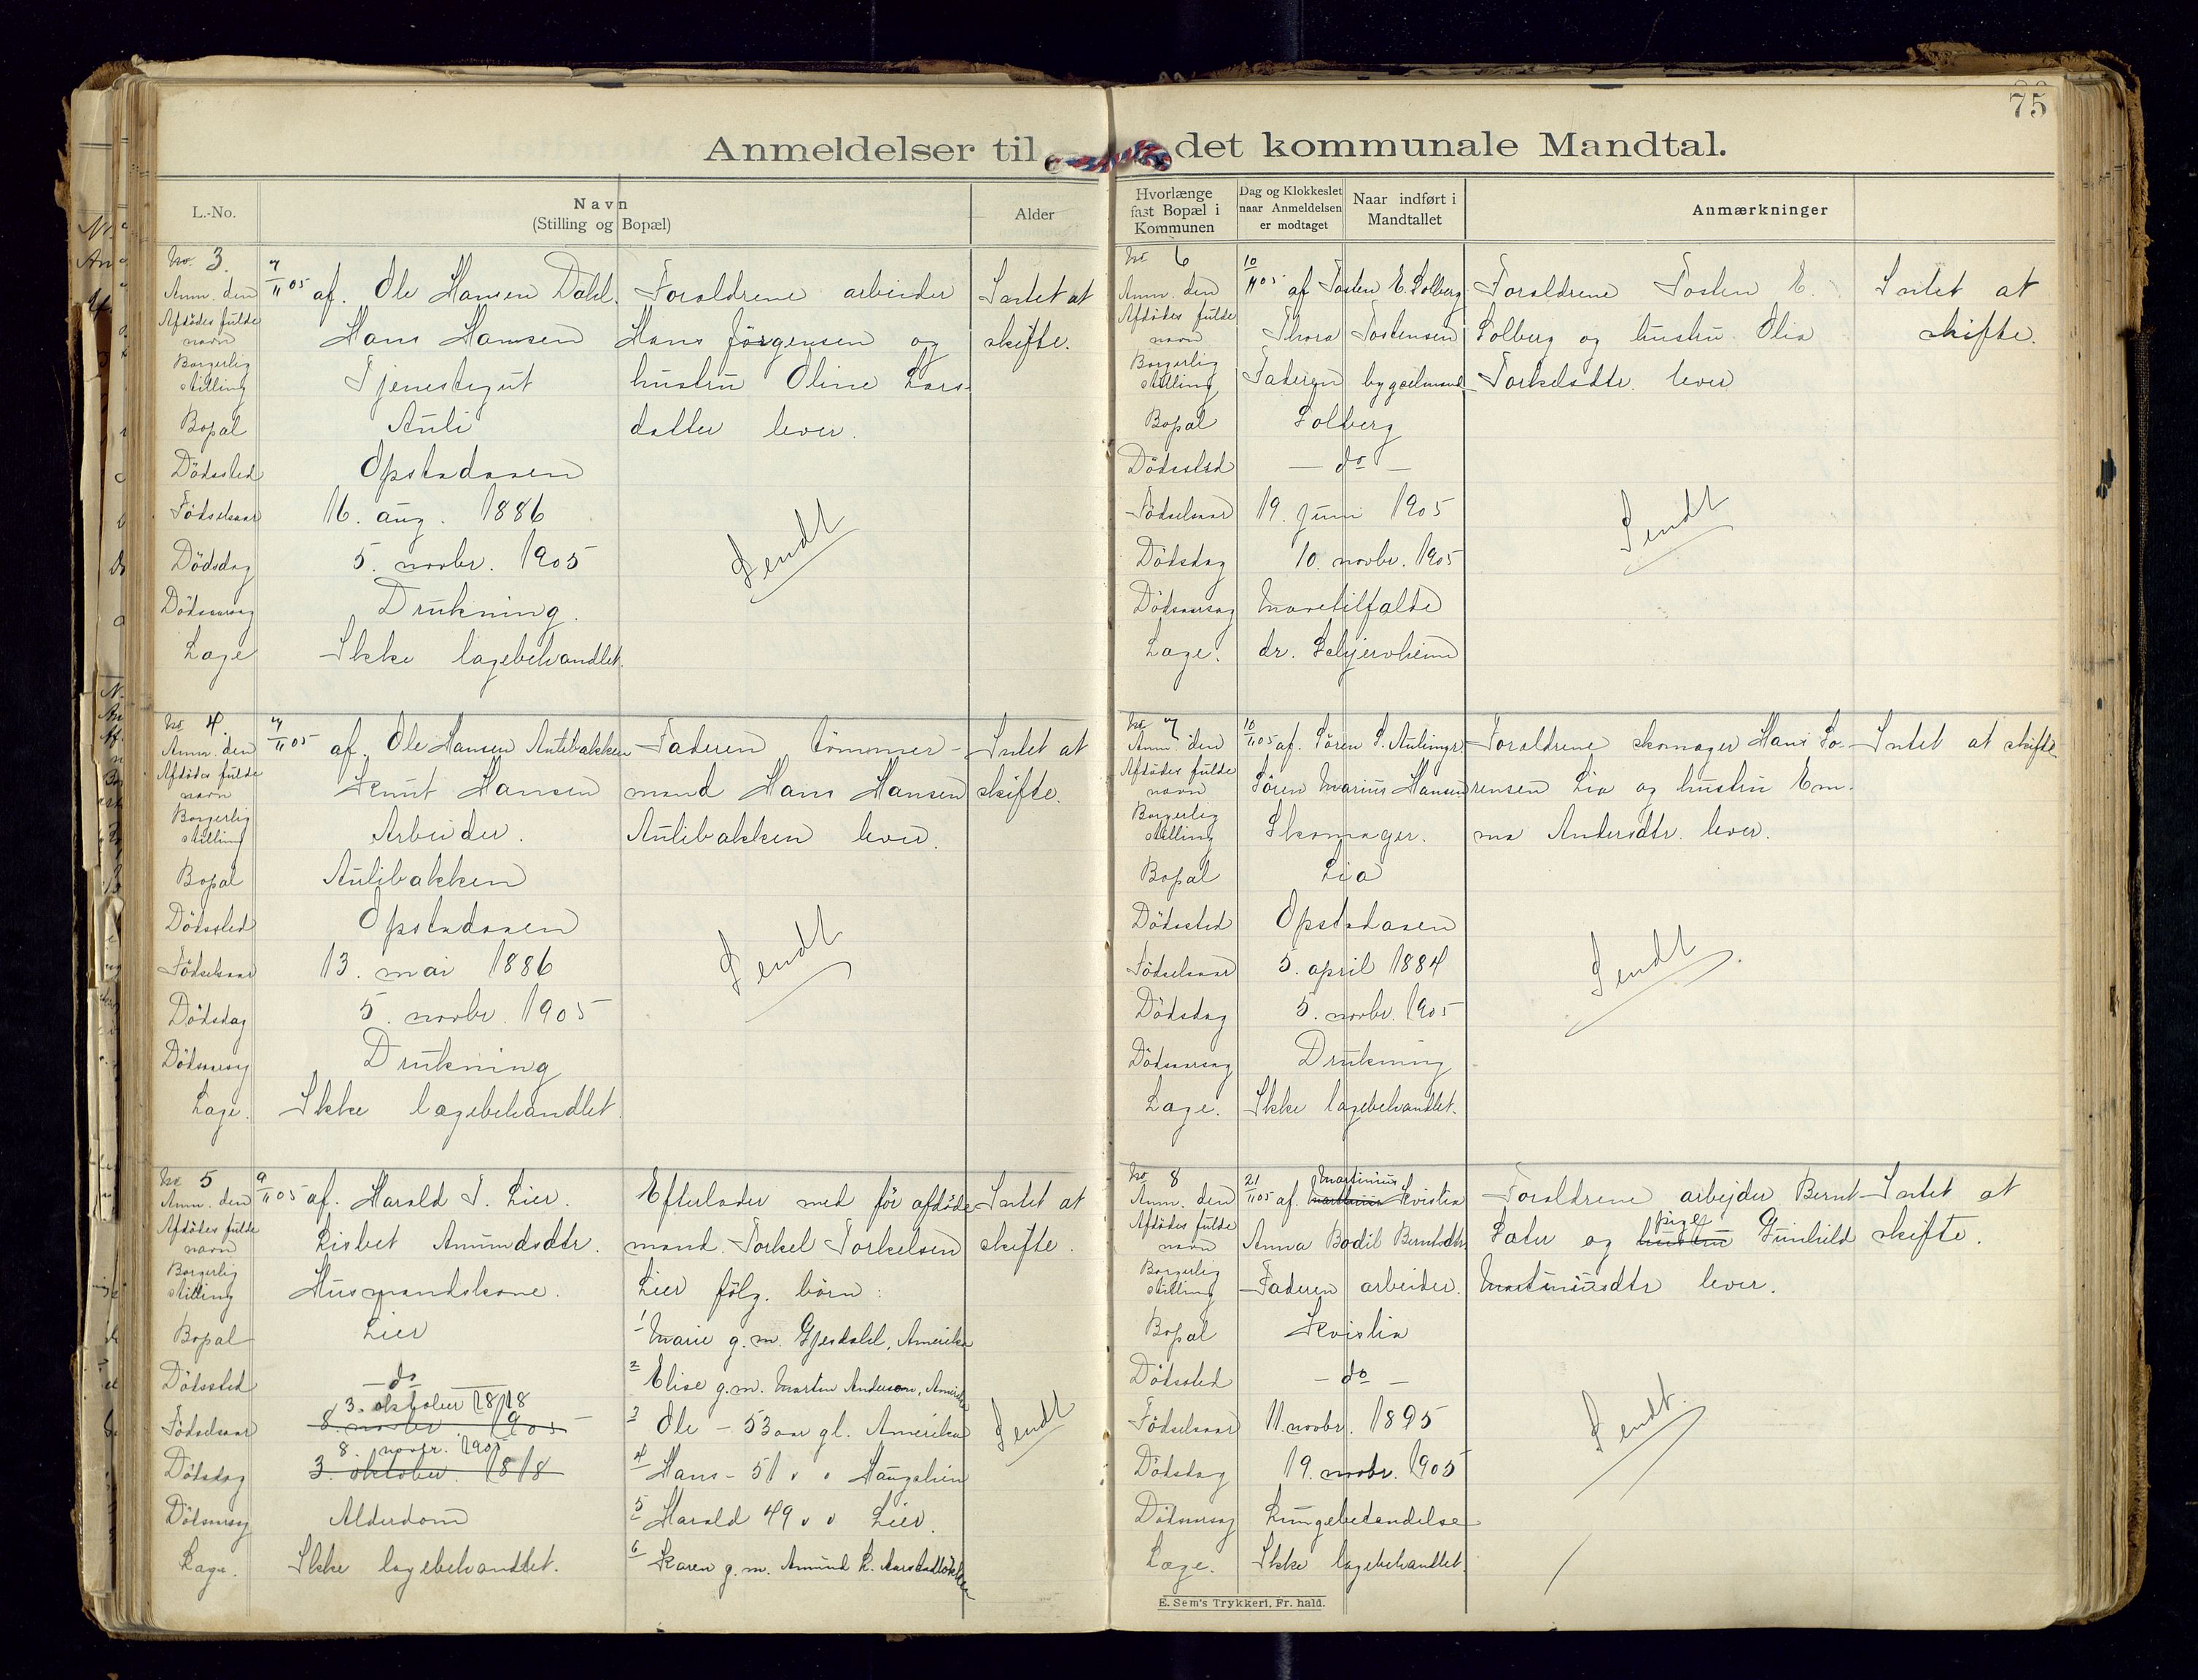 75
Anmeldelser til det kommunale Mandtal.
L.-No.
Navn
(Stilling og Bopæl)
Alder
Hvorlænge fast Bopæl i Kommunen
Dag og Klokkeslet naar Anmeldelsen er modtaget
Naar indført i Mandtallet
Anmærkninger
No. 3.
Anm. den 7/11 05 af. Ole Hansen Dahl. Foraldrene arbeider Intet at
Afdödes fulde navn Hans Hansen Hans Jörgensen og skifte.
Borgerlig stilling Tjenestegut hustru Oline Lars-
Bopal Auli datter lever.
Dödssted Opstadaaen
Födselsaar 16. aug. 1886
Dödsdag 5. novbr. 1905 Sendt
Dödsaarsag Drukning.
Læge Ikke lagebehandlet.
No 4.
Anm. den 7/11 05 af. Ole Hansen Aulibakken Faderen tömmer- Intet at
Afdödes fulde navn Knut Hansen mand Hans Hansen skifte.
Borgerlig stilling Arbeider. Aulibakken lever.
Bopal Aulibakken
Dödssted Opstadaaen
Födselsaar 13. mai 1886 Sendt
Dödsdag 5. novbr. 1905
Dödsaarsag Drukning
Læge. Ikke lægebehandlet.
No 5
Anm. den 9/11 05 af. Harald T. Lier. Efterlader med för afdöde Intet at
Afdödes fulde navn Lisbet Amundsdtr. mand Torkel Torkelsen skifte.
Borgerlig stilling Husmandskone. Lier fölg. börn:
Bopal Lier 1 Marie g. m. Gjesdahl, Amerika
Dödssted - do - 2 Elise g. m. Martin Anderson, Amerika
3. oktober 1818
Födselsaar 8. novbr 1905 3 Ole - 53 aar gl. Amerika Sendt
8. novbr. 1905
Dödsdag 3. oktober. 1818 4 Hans - 51 " "
Dödsaarsag Alderdom 5 Harald 49 " " Lier.
Læge. Ikke lagebehandlet. 6 Karen g. m. Amund L. Aarstadbakken
No 6
Anm. den 10/11 05 af Tosten E. Solberg Foraldrene Tosten E. Intet at
Afdödes fulde navn Thora Tostensen Solberg og hustru Olia skifte.
Borgerlig stilling Faderen bygselmand Torkelsdtr. lever
Bopal Solberg
Dödssted - do -
Födselsaar 19. juni 1905 Sendt
Dödsdag 10. novbr. 1905
Dödsaarsag Mavetilfalde
Læge. dr. Schjervheim
No 7
Anm. den 10/11 05 af. Sören S. Foraldrene skomager Hans So- Intet at skifte
Afdödes fulde navn Sören Marius Hansen rensen Lia og hustru Em-
Borgerlig stilling Skomager. ma Andersdtr. lever.
Bopal Lia
Dödssted Opstadaaen
Födselsaar 5. april 1884 Sendt
Dödsdag 5. novbr. 1905
Dödsaarsag Drukning
Læge. Ikke lagebehandlet.
No 8
Martinius
Anm. den 21/11 05 af. Kvislia Foraldrene arbejder Bernt Intet at
pige
Afdödes fulde navn Anna Bodil Berntsdtr Sater og hustru Gunhild skifte.
Borgerlig stilling Faderen arbeider. Martiniusdtr lever.
Bopal Kvislia
Dödssted - do -
Födselsaar 11. novbr. 1895 Sendt.
Dödsdag 19. novbr. 1905
Dödsaarsag Lungebetendelse
Læge. Ikke lagebehandlet.
E. Sem's Trykkeri, Fr. hald.